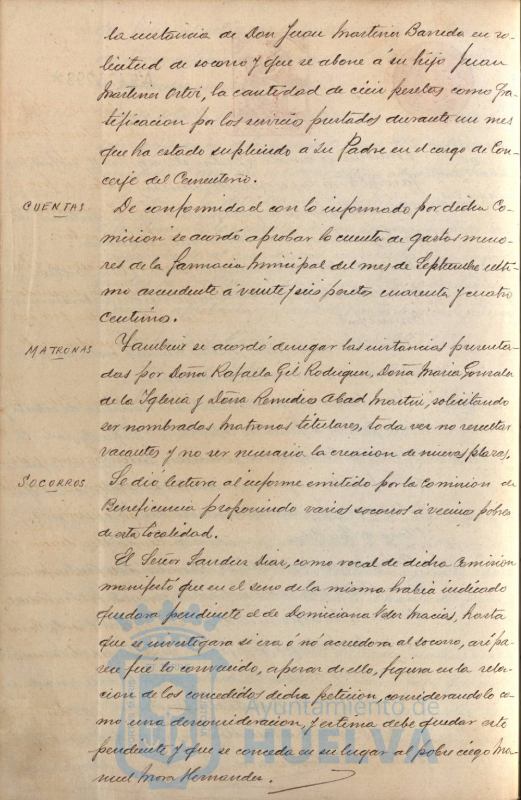 la instancia de Don Juan Martinez Barreda en so-
licitud de socorro y que se abone á su hijo Juan
Martinez Ortiz, la cantidad de cien pesetas como gra-
tificacion por los servicios prestados durante un mes
que ha estado supliendo á su Padre en el cargo de Con-
cerje del Cementerio.
CUENTAS De conformidad con lo informado por dicha Co-
mision se acordó aprobar la cuenta de gastos meno-
res de la farmacia Municipal del mes de Septiembre ulti-
mo ascendente á veinte y seis pesetas cuarenta y cuatro
centimos.
MATRONAS Tambien se acordó denegar las instancias presenta-
das por Doña Rafaela Gil Rodriguez, Doña Maria Gonzalez
de la Iglesia y Doña Remedios Abad Martin, solicitando
ser nombradas Matronas titulares, toda vez no resultar
vacantes y no ser necesaria la creacion de nuevas plazas.
SOCORROS Se dió lectura al informe emitido por la Comision de
Beneficencia proponiendo varios socorros á vecinos pobres
de esta localidad.
El Señor Sanchez Diaz, como vocal de dicha Comision
manifestó que en el seno de la misma habia indicado
quedara pendiente el de Domiciana Macias, hasta
que se investigara si era ó nó acreedora al socorro, así pa-
rece fué lo convenido, a pesar de ello, figura en la rela-
cion de los concedidos dicha peticion, considerandolo co-
mo una desconsideracion, y estima debe quedar este
pendiente y que se conceda en su lugar al pobre ciego Ma-
nuel Mora Hernandez.
Ayuntamiento de
HUELVA